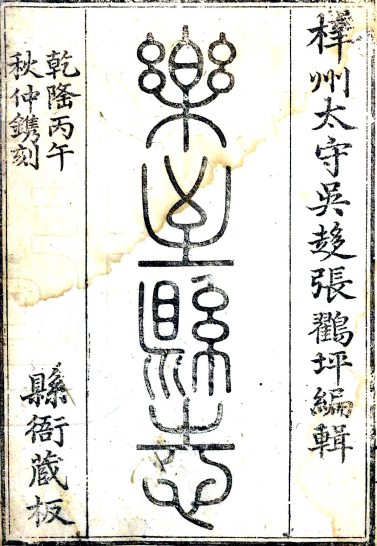 梓州太守吳趍張鸖坪編輯
樂至縣志
乾隆丙午
秋仲鐫刻
縣衙藏板